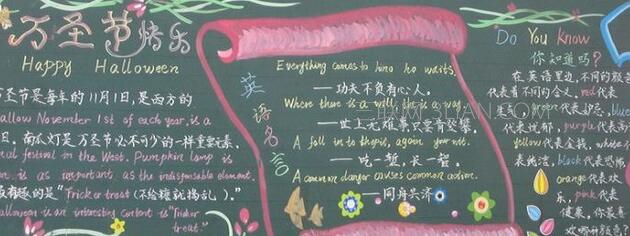 万圣节快乐
Happy Halloween
圣节是每年的11月1日,是西方的
allow November 1st of each year, is a
日。南瓜灯是万圣节必不可少的一样重要元素,
al festival in the West. Pumpkin lamp is
is as important as the indispensable element.
有趣的是"Trick or treat (不给糖就捣乱)。"
alloween is an interesting content is "Trick or
treat."
英语名言
Everything comes to him who waits.
——功夫不负有心人。
Where there is a will, there is a way.
——世上无难事只要肯登攀。
A fall into the pit, a gain your wit.
——吃一堑,长一智。
A common danger causes common action.
——同舟共济
Do You Know
你知道吗?
在英语里边,不同的颜
代表着不同的含义,red代表
green代表妒忌,blue
代表忧郁,purple代表高
yellow代表金钱,white代
表纯洁,black代表恐怖
orange代表欢
乐,pink代表
健康,你最喜
欢哪种颜色?